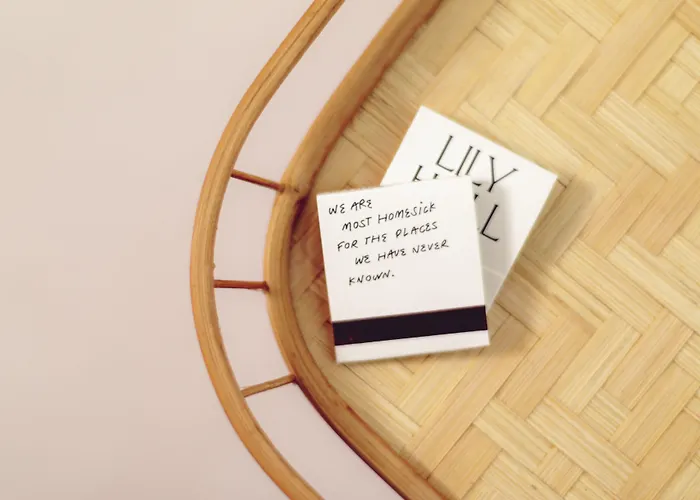 LILY
WE ARE
MOST HOMESICK
FOR THE PLACES
WE HAVE NEVER
KNOWN.